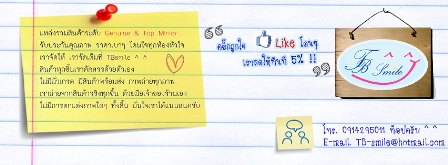 แหล่งรวมสินค้าระดับ Genuine & Top Mirror
รับประกันคุณภาพ ราคาเบาๆ โดนใจทุกท้องหัวใจ
เราจัดให้ เราจัดเต็มที่ TBsmile ^ ^
สินค้าทุกชิ้นเราคัดสรรด้วยตัวเอง
ไม่มีมั่วภาพ มีสินค้าพร้อมส่ง ภาพถ่ายทุกภาพ
เราถ่ายจากสินค้าจริงทุกชิ้น ด้วยมือเจ้าของร้านเอง
ไม่มีการตกแต่งภาพใดๆ ทั้งสิ้น มั่นใจเราได้แน่นอนครับ
คลิ๊กถูกใจ Like โดนๆ
เราลดให้ทันที 5% !!
TB Smile
โทร. 0914295011 ท็อปครับ ^^
E-mail. TB-smile@hotmail.com